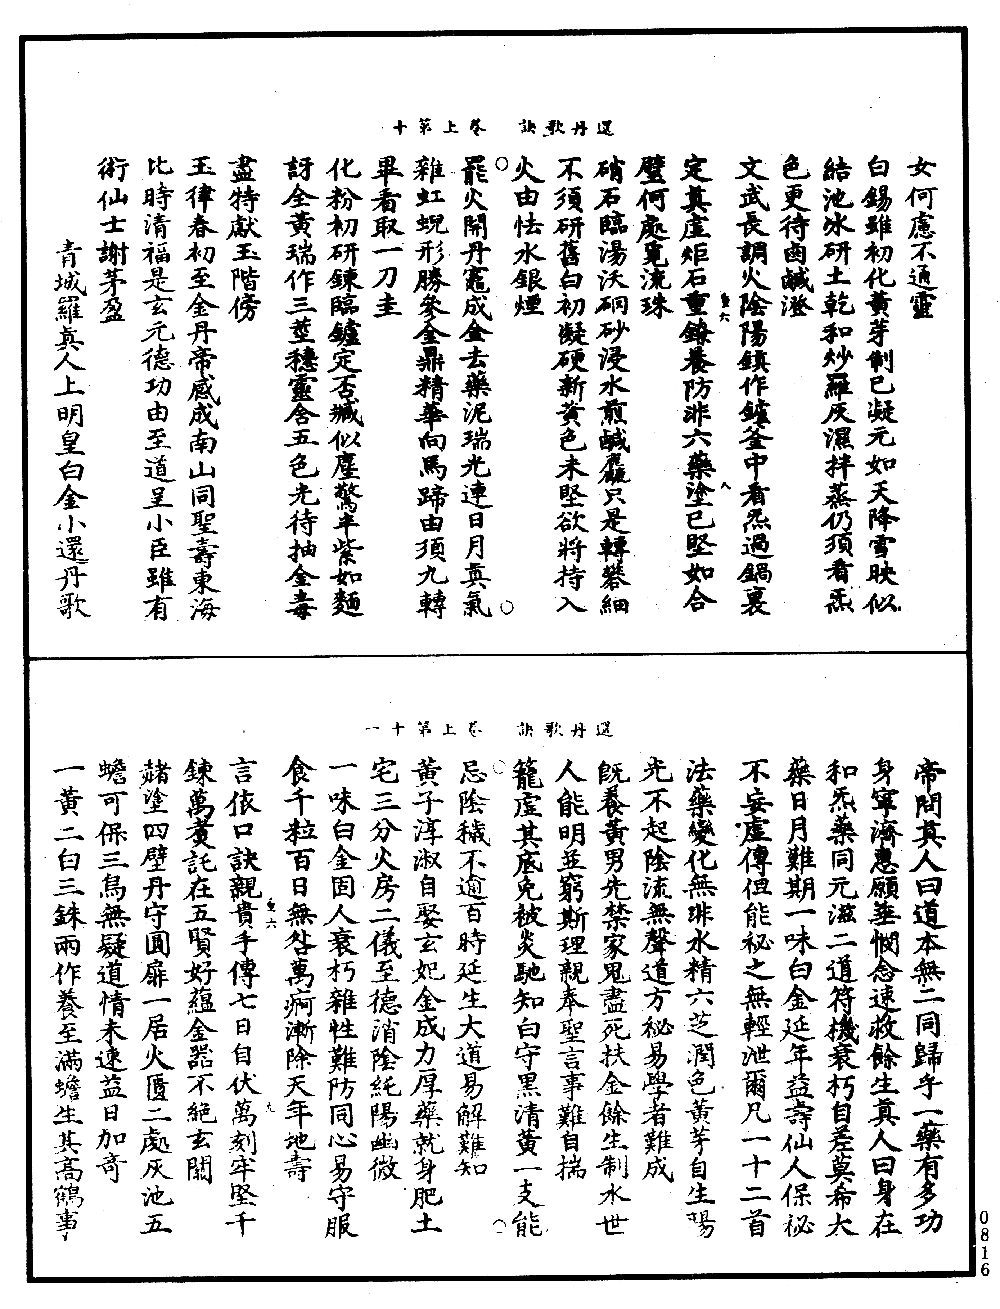 還丹歌訣　卷上第十
女何慮不通靈
白錫雖初化黃芽制已凝元如天降雪映似
結池冰研土乾和炒羅灰濕拌蒸仍須看炁
色更待鹵鹹澄
文武長調火陰陽鎮作鑪釜中看炁過鍋裏
定真虛炬石重鐐養防非六藥塗已堅如合
璧何處覓流珠
硝石臨湯沃硇砂浸水煎鹹霜只是轉礬細
不須研舊白初凝硬新黃色未堅欲將持入
火由怯水銀煙
罷火開丹竈成金去藥泥瑞光連日月真氣
雜虹蜺形勝參金鼎精華向馬蹄由須九轉
畢看取一刀圭
化粉初研鍊臨鑪定否臧似塵驚半紫如麵
訝全黃瑞作三莖穗靈含五色光待抽金毒
盡特獻玉階傍
玉律春初至金丹帝感成南山同聖壽東海
比時清福是玄元德功由至道呈小臣雖有
術仙士謝茅盈
青城羅真人上明皇白金小還丹歌
還丹歌訣　卷上第十一
帝問真人曰道本無二同歸乎一藥有多功
身寧濟惠願垂憫念速救餘生真人曰身在
和炁藥同元滋二道符機衰朽自差莫希大
藥日月難期一味白金延年益壽仙人保秘
不妄虛傳但能秘之無輕泄爾凡一十二首
法藥變化無非水精六芝潤色黃芽自生陽
光不起陰流無聲道方秘易學者難成
既養黃男先禁家鬼盡死扶金餘生制水世
人能明並窮斯理親奉聖言事難自揣
籠虛其底免被炎馳知白守黑清黃一支能
忌陰穢不逾百時延生大道易解難知
黃子淳淑自娶玄妃金成力厚藥就身肥土
宅三分火房二儀至德消陰純陽幽微
一味白金固人衰朽雜性難防同心易守服
食千粒百日無咎萬痾漸除天年地壽
言依口訣親貴手傳七日自伏萬刻牢堅千
鍊萬賷託在五賢好蘊金器不絕玄關
赭塗四壁丹守圓扉一居火匱二處灰池五
蟾可保三烏無疑道情未速益日加奇
一黃二白三銖兩作養至滿蟾生其高鶴事
0816